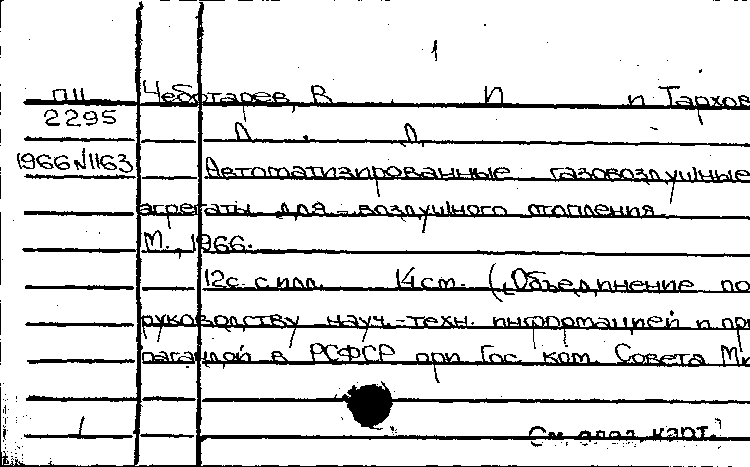 1
ПШ Чеботарев, В. П. и Тархов
2295
Л. Л.
1966 N1163 Автоматизированные газовоздушные
агрегаты для воздушного отопления.
М., 1966.
12с. с илл. 14см. (Объединение по
руководству науч.-техн. информацией и про
пагандой в РСФСР при Гос. ком. Совета Ми
См. след. карт.